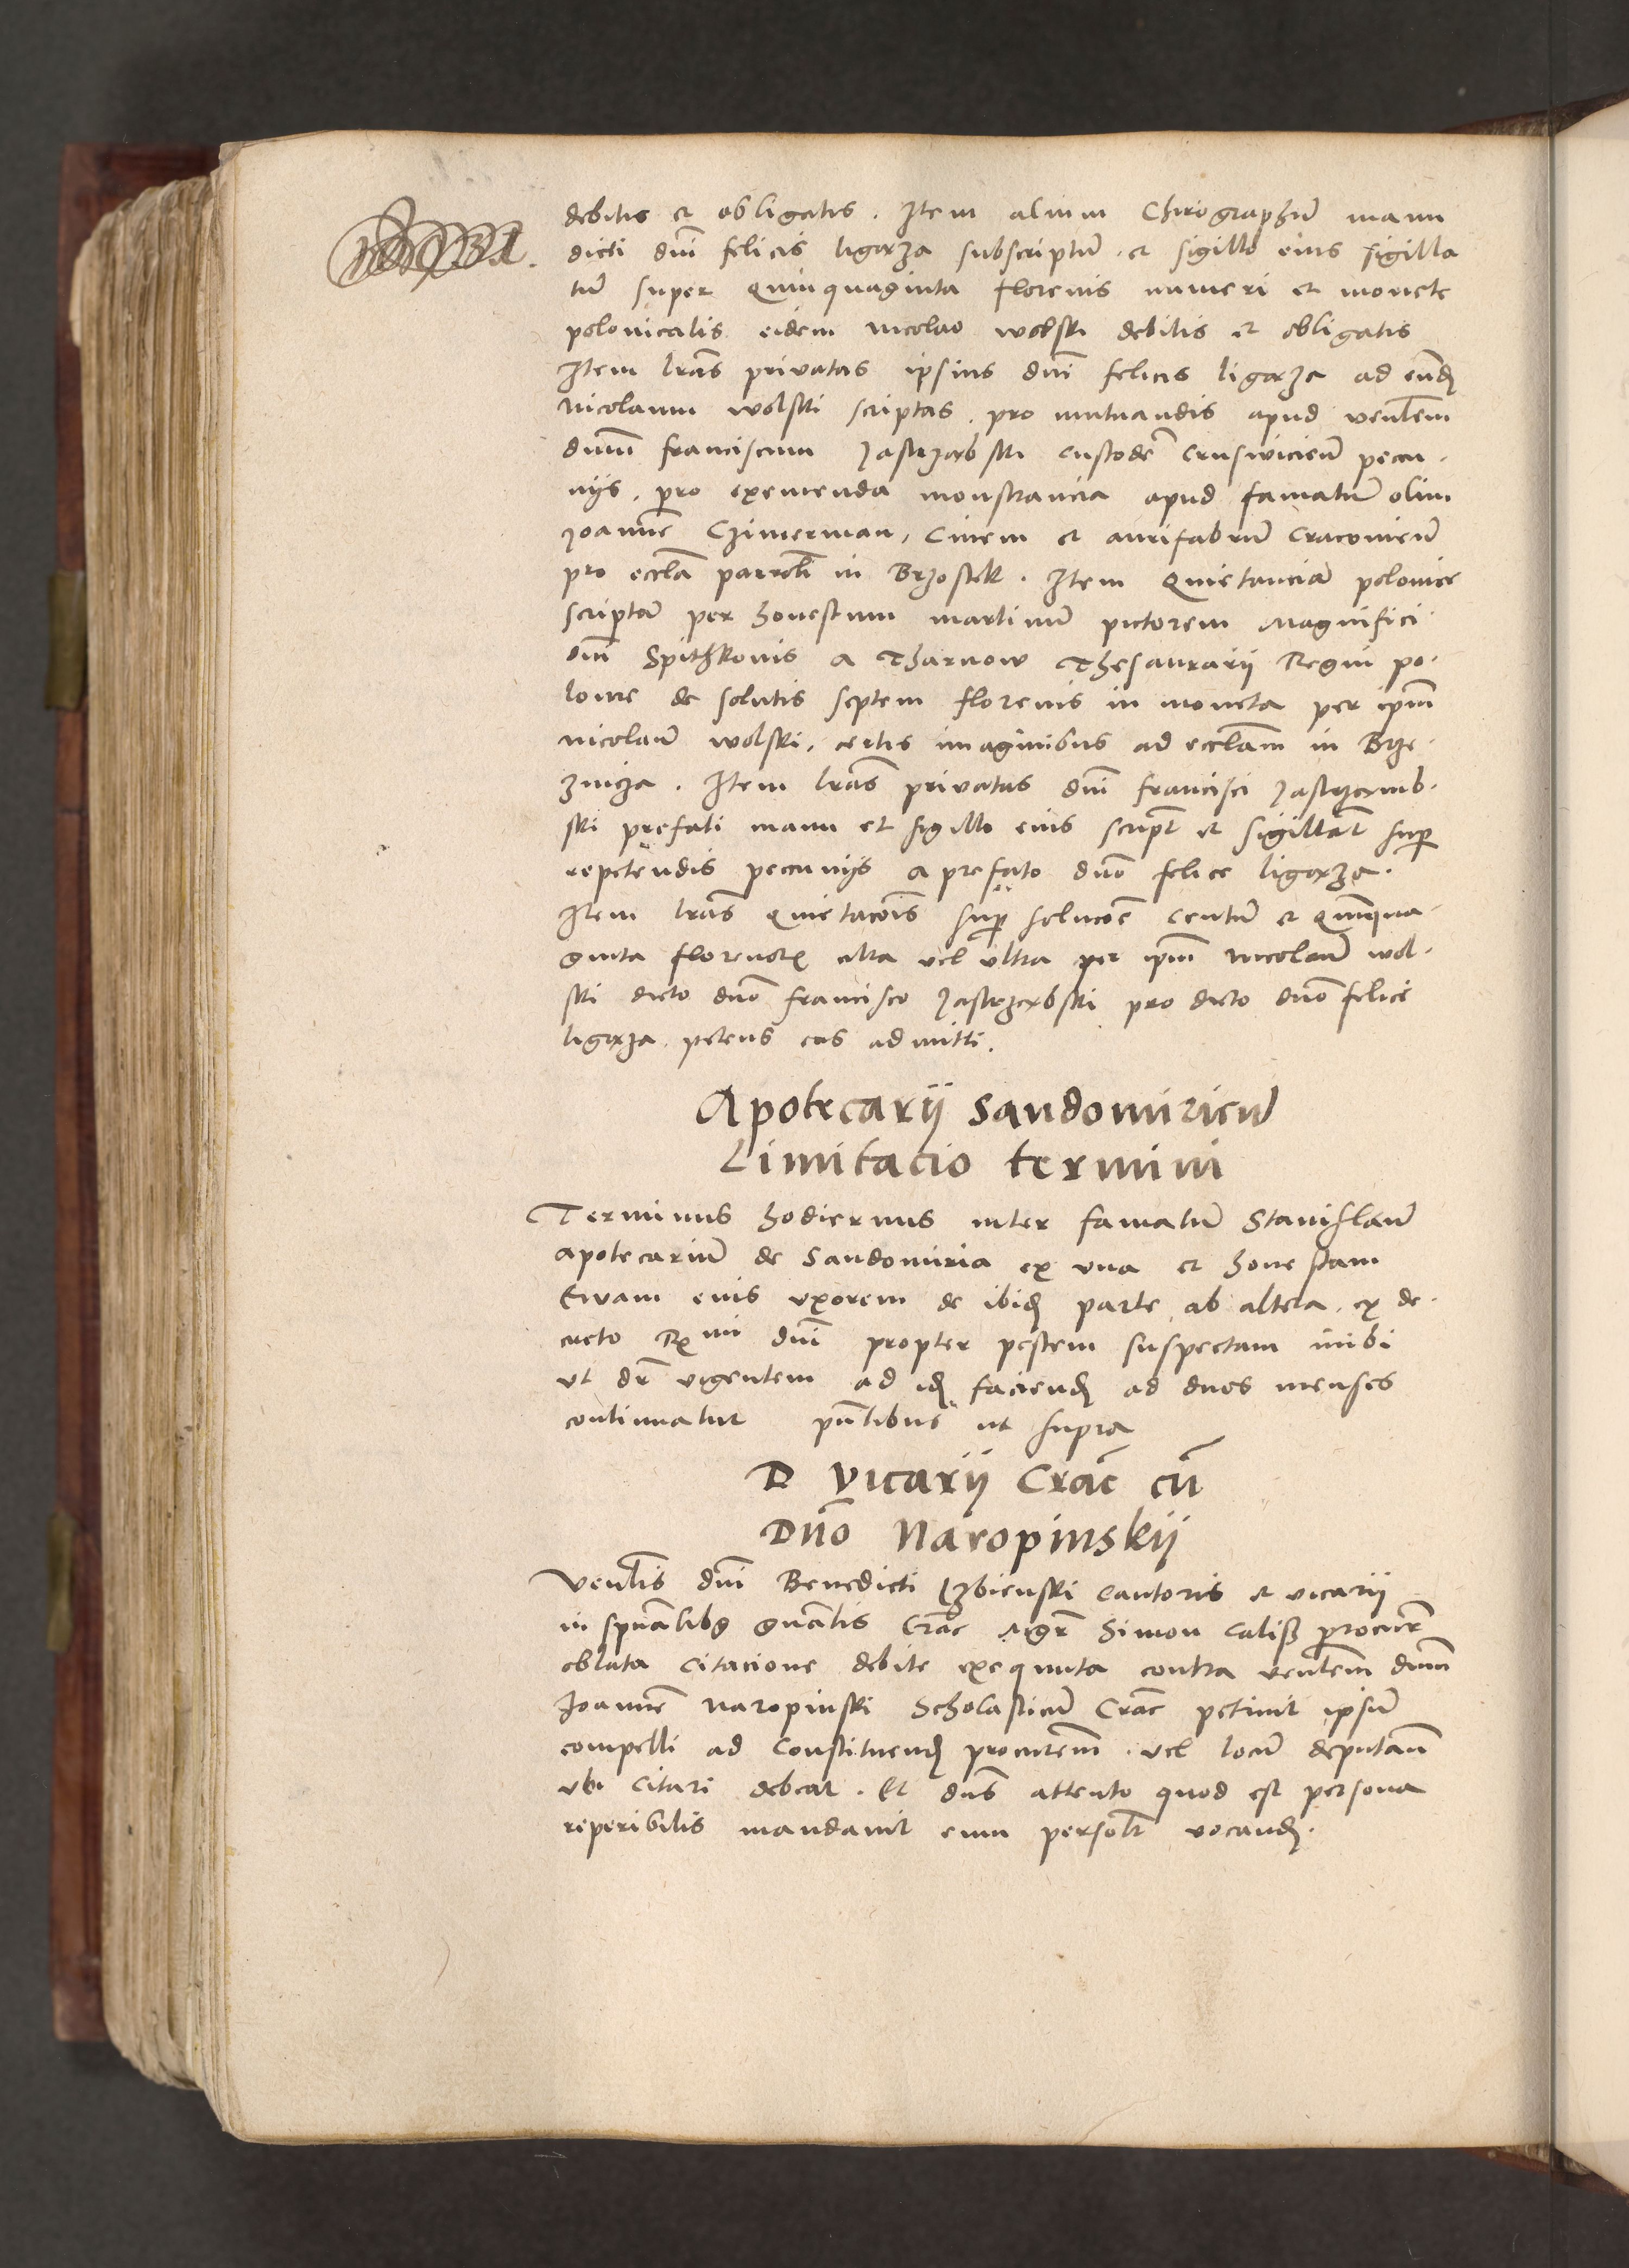 debitis et obligatis . Item alium Chirographū manu
dicti dnī felicis ligęza subscriptū . et sigillo eius sigilla
tū super quinquaginta florenis numeri et monete
polonicalis eidem nicolao wolski debitis et obligatis
Item lras privatas ipsius dnī felicis ligęza ad eund
nicolaum wolski scriptas . pro mutuandis apud venlem
dnum franciscum Jastrzębski custodē Crusvicieñ pecu-
nijs . pro exemenda monstrancia apud famatū olim
Joannē Czimerman, Civem et aurifabrū Cracovieñ
pro eccla parrochi in Brzostek . Item Quietanciā polonice
scriptā per honestum martinū pictorem Magnifici
dnī Spithkonis a Tharnow Thesaurarii Regni po-
lonie de solutis septem florenis in moneta per ipm
nicolaū wolski . certis imaginibus ad ecclam in Brze-
znicza . Item lras privatas dnī francisci Jastrzemb-
ski prefati manu et sigillo eius script et sigillat sup
repetendis peccunijs a prefato dno felice ligęza .
Item lras quietacois sup solucoē centū et quinqua-
ginta florenor citra vel ultra per ipm nicolaū wol-
ski dicto dno francisco Jastrzębski pro dicto dno felice
ligęza . petens eas admitti .
Apotecarii Sandomirieñ
Limitacio termini
Terminus hodiernus inter famatū Stanislaū
apotecariū de Sandomiria ex una et honestam
Ewam eius uxorem de ibid parte ab altera . ex de-
creto Rmi dnī propter pestem suspectam inibi
ut dr vigentem ad id faciend ad duos menses
continuatur pntibus ut supra
D vicarii Crac cū
Dno Naropinskij
Venlis dnī Benedicti Izbienski cantoris et vicarii
in spualibus gnalis Crac Mgr Simon Calisz procur
oblata citacione debite exequuta contra venlem dnum
Joannē Naropinski Scholasticū Crac petivit ipsū
compelli ad constituend procutorem . vel locū deputan
ubi citari debeat . Et dns attento quod est persona
reperibilis mandavit eum personlr vocand .